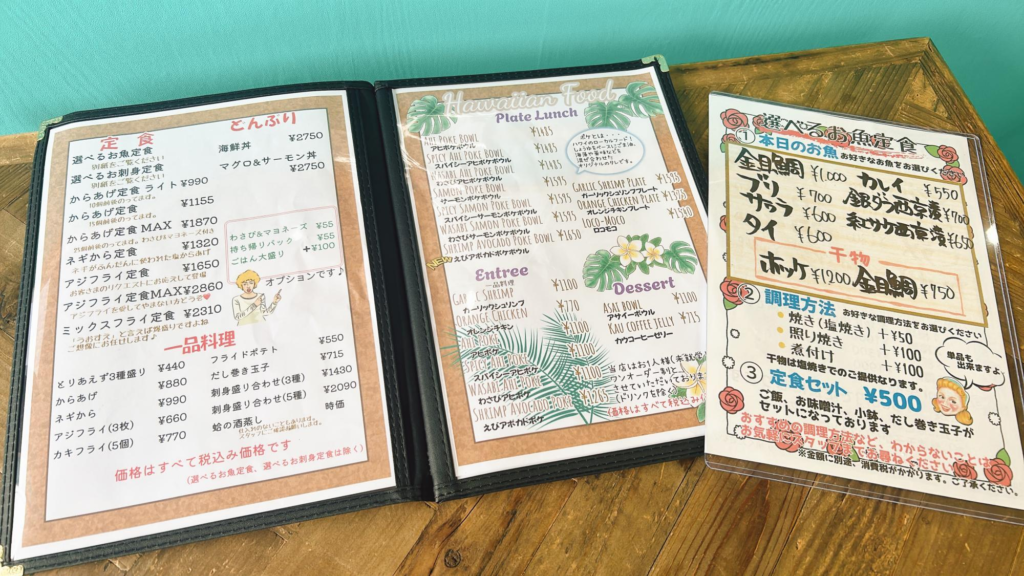 定 食
選べるお魚定食
別紙をご覧ください
選べるお刺身定食
別紙をご覧ください
からあげ定食 ライト ¥990
からあげ定食 ¥1155
からあげ定食 MAX ¥1870
ネギから定食 ¥1320
ネギがふんだんに使われた塩からあげ
アジフライ定食 ¥1650
お客さまのリクエストにお応えして登場
アジフライ定食MAX ¥2860
アジフライを愛してやまない方どうぞ♥
ミックスフライ定食 ¥2310
どんぶり
海鮮丼 ¥2750
マグロ&サーモン丼 ¥2750
わさび&マヨネーズ ¥55
持ち帰りパック ¥55
ごはん大盛り +¥100
オプションです♪
一品料理
とりあえず3種盛り ¥440
からあげ ¥880
ネギから ¥990
アジフライ(3枚) ¥660
カキフライ(5個) ¥770
フライドポテト ¥550
だし巻き玉子 ¥715
刺身盛り合わせ(3種) ¥1430
刺身盛り合わせ(5種) ¥2090
蛤の酒蒸し 時価
価格はすべて税込み価格です
(選べるお魚定食、選べるお刺身定食は除く)
Hawaiian Food
Plate Lunch
Ahi Poke Bowl ¥1485
アヒポケボウル
Spicy Ahi Poke Bowl ¥1485
スパイシーアヒポケボウル
Wasabi Ahi Poke Bowl ¥1485
わさびアヒポケボウル
Salmon Poke Bowl ¥1595
サーモンポケボウル
Spicy Samon Poke Bowl ¥1595
スパイシーサーモンポケボウル
Wasabi Samon Poke Bowl ¥1595
わさびサーモンポケボウル
Shrimp Avocado Poke Bowl ¥1650
えびアボカドポケボウル
ポケとは・・・
ハワイのローカルフード
Garlic Shrimp Plate
ガーリックシュリンププレート
Orange Chicken Plate
オレンジチキンプレート
ロコモコ
Entree
一品料理
Garlic Shrimp ¥1100
ガーリックシュリンプ
Orange Chicken ¥770
オレンジチキン
¥1100
アヒポケ
¥1100
スパイシーアヒポケ
Wasabi Ahi Poke ¥1100
わさびアヒポケ
Shrimp Avocado Poke ¥1265
えびアボカドポケ
Dessert
Asai Bowl ¥1100
アサイーボウル
Kau Coffee Jelly ¥715
カウコーヒーゼリー
当店はお1人様
ワンオーダー制と
させていただいております
(ドリンクを除く)
価格はすべて税込み
選べるお魚定食
① 本日のお魚 お好きなお魚をお選びください
金目鯛 ¥1,000
ブリ ¥700
サワラ ¥600
タイ ¥600
カレイ ¥550
銀ダラ西京漬 ¥700
サケ西京漬 ¥650
干物
ホッケ ¥1200 金目鯛 ¥950
② 調理方法 お好きな調理方法をお選びください
・ 焼き(塩焼き) +¥50
・ 照り焼き +¥100
・ 煮付け +¥100
干物は塩焼きでのご提供なります。
単品も
出来ますよ♪
③ 定食セット ¥500
ご飯、お味噌汁、小鉢、だし巻き玉子が
セットになっております
おすすめの調理方法など、わからないことは
お気軽にスタッフまでお尋ねください
※金額に別途、消費税がかかります。ご了承ください。